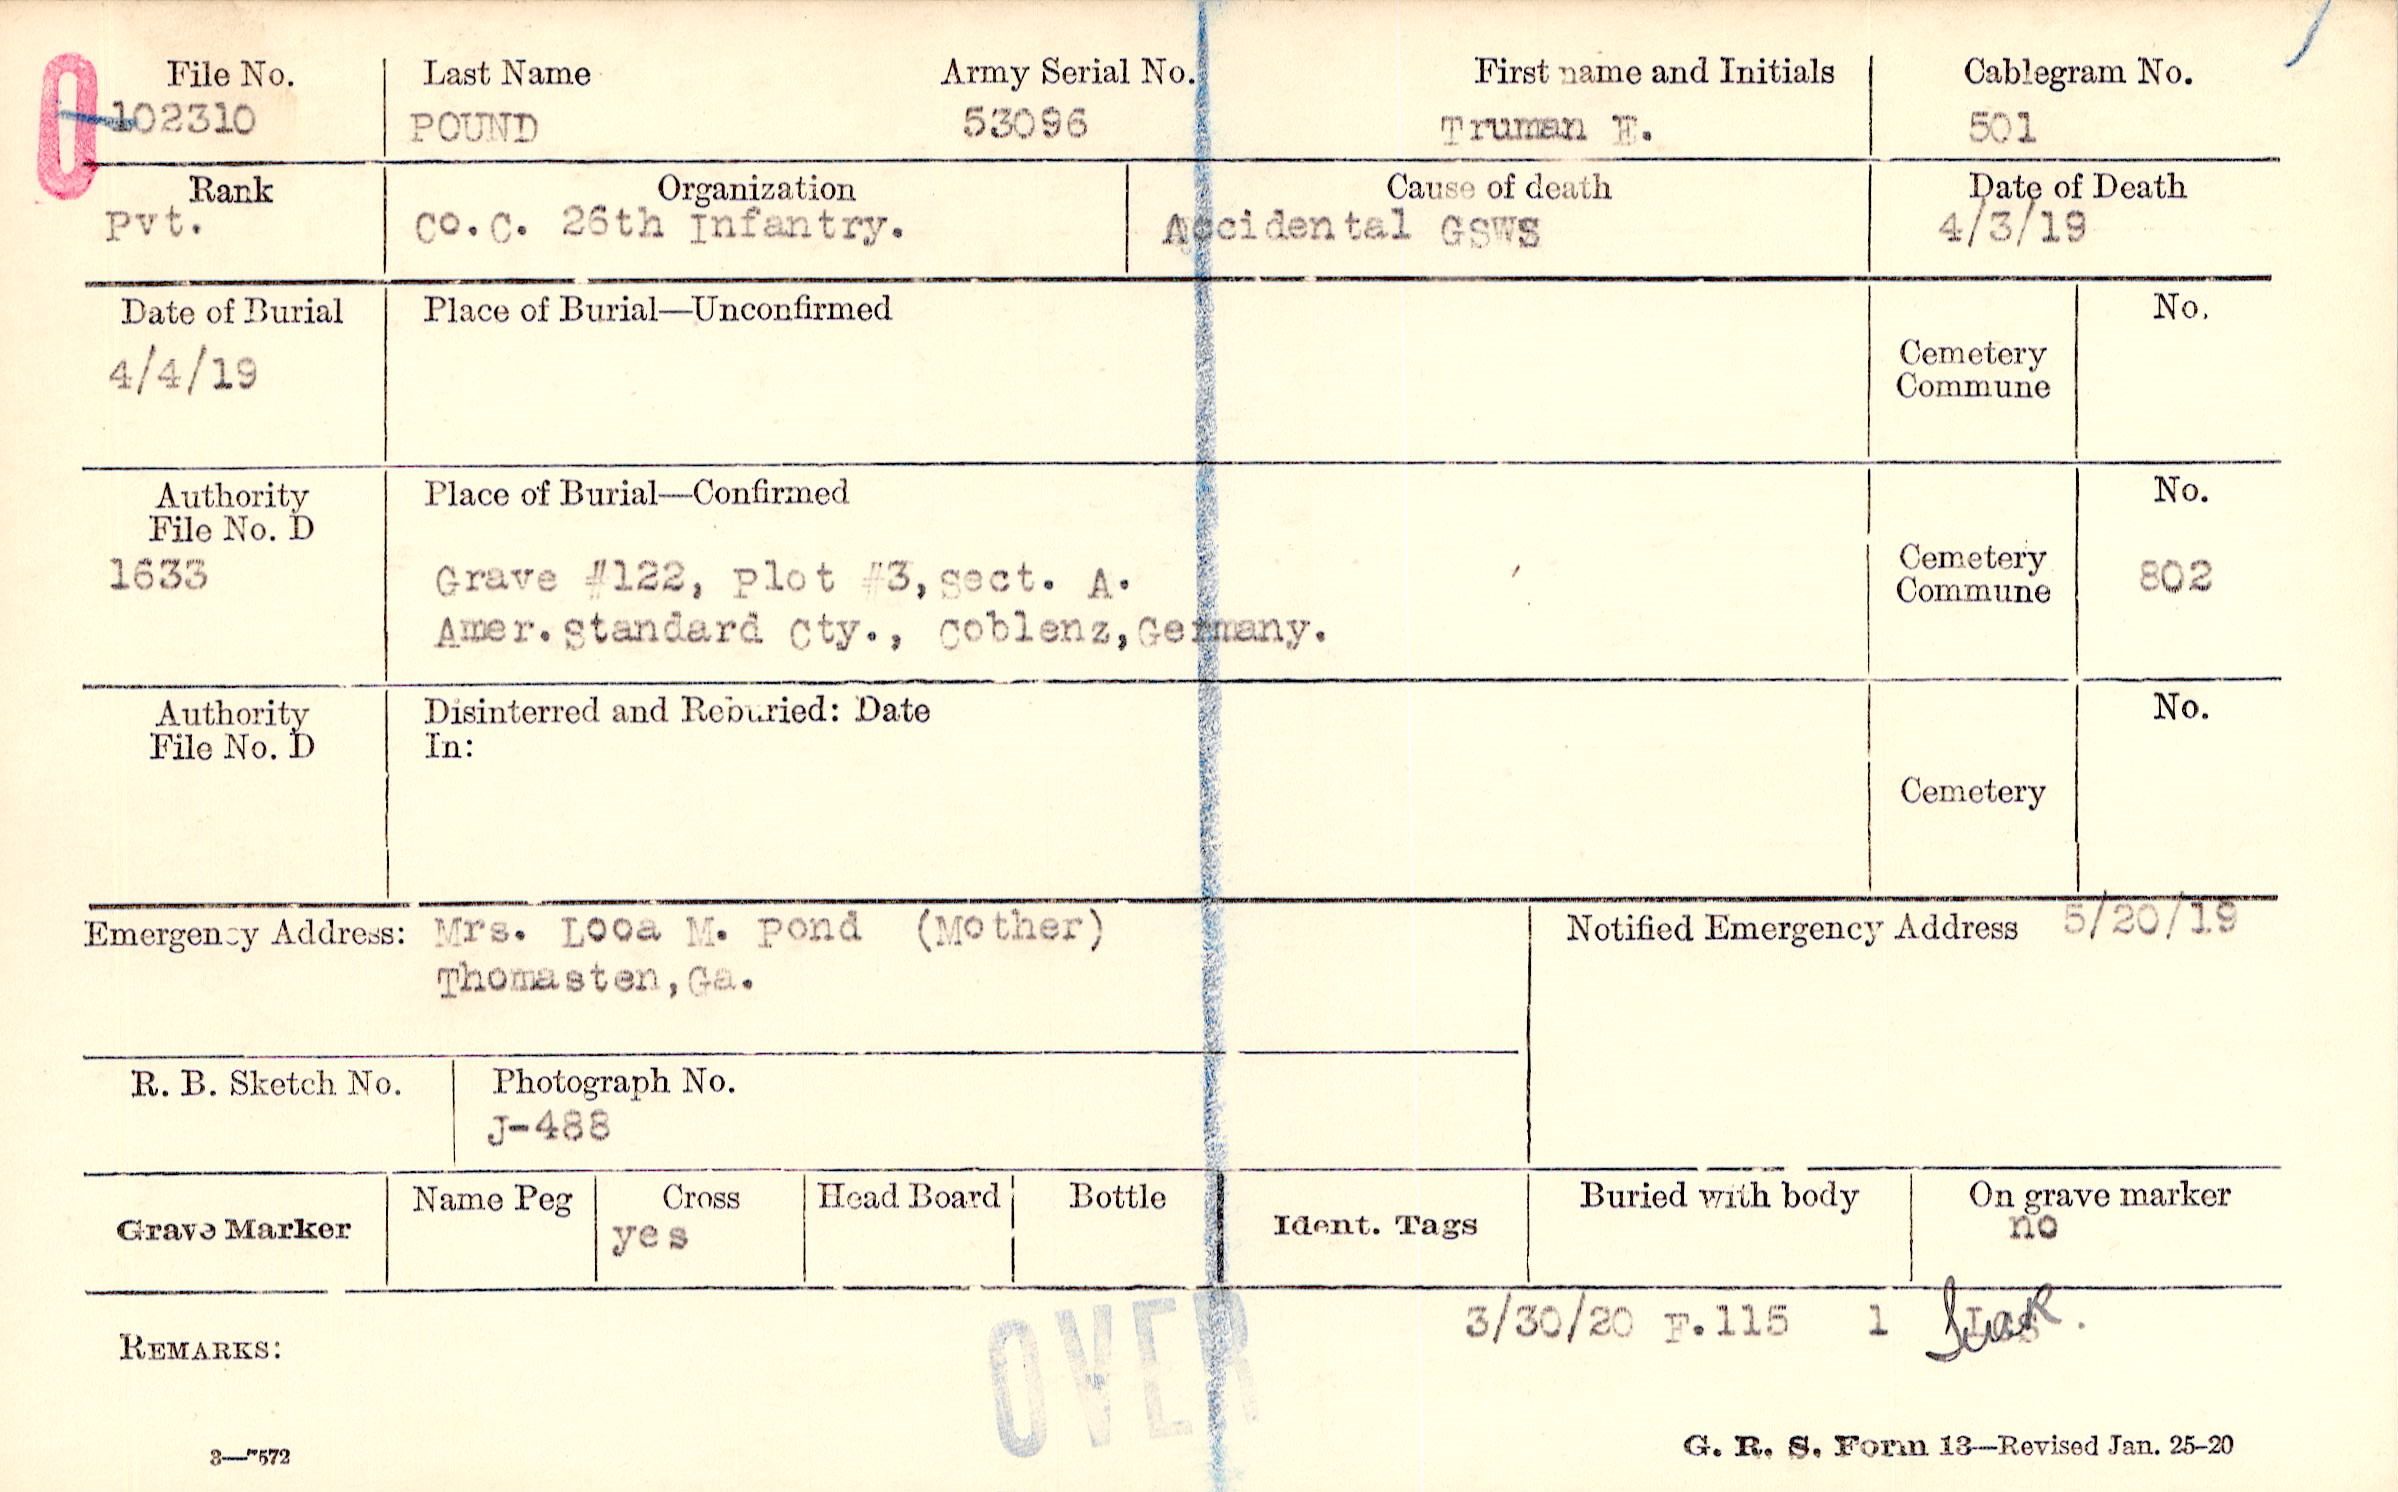 O
File No. Last Name Army Serial No. First name and Initials Cablegram No.
102310 POUND 53096 Truman E. 501
Rank Organization Cause of death Date of Death
Pvt. Co.C. 26th Infantry. Accidental GSWS 4/3/19
Date of Burial Place of Burial—Unconfirmed No.
4/4/19
Cemetery
Commune
Authority Place of Burial—Confirmed No.
File No. D
1633 Grave #122, Plot #3, Sect. A. Cemetery
Commune 802
Amer.Standard Cty., Coblenz,Germany.
Authority Disinterred and Reburied: Date No.
File No. D In:
Cemetery
Emergency Address: Mrs. Looa M. Pond (Mother) Notified Emergency Address 5/20/19
Thomasten,Ga.
R. B. Sketch No. Photograph No.
J-488
Grave Marker Name Peg Cross Head Board Bottle Ident. Tags Buried with body On grave marker
yes no
3/30/20 F.115 1
REMARKS:
OVER
3—7572 G. R. S. Form 13—Revised Jan. 25-20